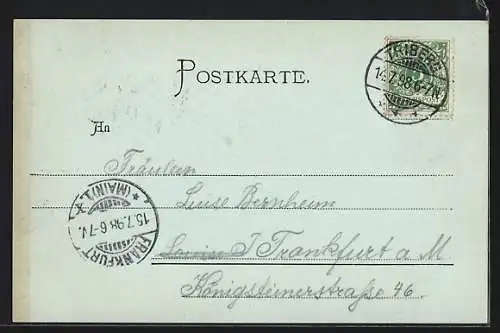 POSTKARTE.
TRIBERG
14.7.98.6-7N.
An
Fräulein
Luise Bernheim
Frankfurt a M.
Königsteinerstraße 46.
FRANKFURT
15.7.98.6-7V.
(MAIN) 1.